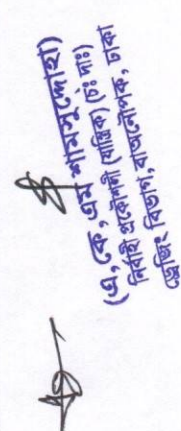 (এ, কে, এম শামসুদ্দোহা)
নির্বাহী প্রকৌশলী (যান্ত্রিক) (চঃ দাঃ)
ড্রেজিং বিভাগ, বাপাউপাক, ঢাকা